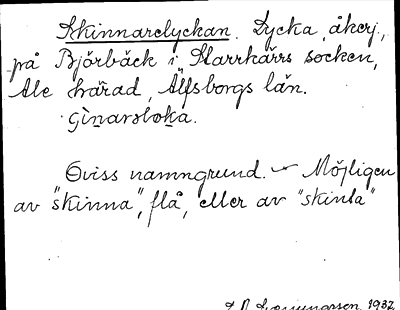 Skinnarelyckan. Lycka, åkerj.,
på Björbäck i Starrkärrs socken,
Ale härad, Älfsborgs län.
Oviss namngrund. Möjligen
av "skinna", flå, eller av "skinta"
1932